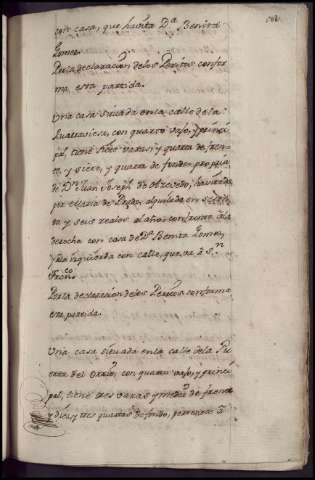 con casa, que havita D.ª Benita
Gomez
Por la declaracion de los Peritos confor
ma, esta partida.
Una casa situada en la calle de la
con quarto vajo, y princi
pal, tiene siete varas y quarta de fren
te y siete, y quarta de fondo propia
de D.n Juan Joseph de havitada
por Maria de alquilada en
ta y seis reales al año confronta a la
derecha con casa de D.ª Benita Gomez,
y a la izquierda con calle, que va a S.n
Fran.co
Por la declaracion de los Peritos conforma
esta partida.
Una casa situada en la calle de la Pu
erta del con quarto vajo, y princi
pal, tiene tres varas y media de frente
y diez y tres quartas de fondo, pertenece a